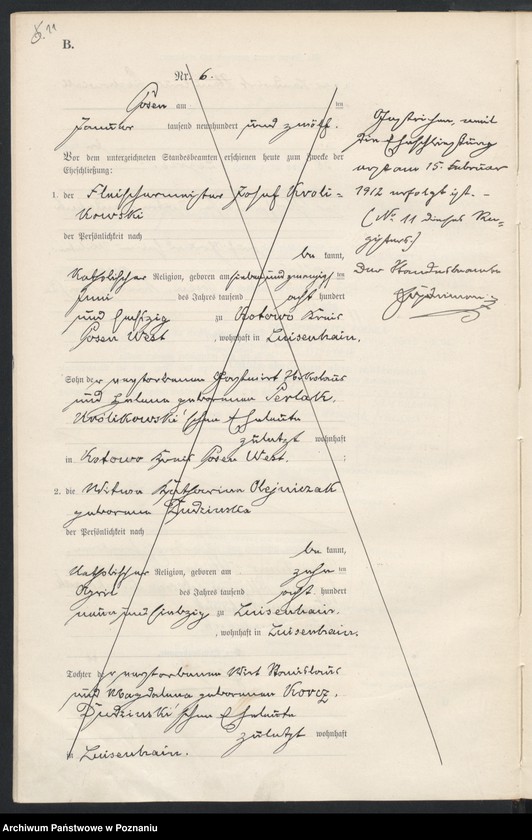 B.
Nr. 6.
Posen am ten
Januar tausend neunhundert und zwölf.
Vor dem unterzeichneten Standesbeamten erschienen heute zum Zwecke der
Eheschließung:
1. der Fleischermeister Josef Kroli-
kowski
der Persönlichkeit nach
be kannt,
katholischer Religion, geboren am siebenundzwanzig ten
Juni des Jahres tausend acht hundert
und sechszig zu Kotowo Kreis
Posen West, wohnhaft in Luisenhain,
Sohn der verstorbenen Gastwirt
und Helena geborenen Perlak,
Krolikowski'schen Eheleute
zuletzt wohnhaft
in Kotowo Kreis Posen West. ;
2. die Witwe Katharina Olejniczak
geborene Dudzinska
der Persönlichkeit nach
be kannt,
katholischer Religion, geboren am zehn ten
April des Jahres tausend acht hundert
neunundsiebzig zu Luisenhain,
, wohnhaft in Luisenhain.
Tochter der verstorbenen Wirt Stanislaus
und Magdalena geborenen Korcz,
Dudzinski'schen Eheleute
zuletzt wohnhaft
in Luisenhain.
Gestrichen, weil
die Eheschließung
erst am 15. Februar
1912 erfolgt ist. -
(Nr. 11 dieses Re-
gisters)
Der Standesbeamte
Archiwum Państwowe w Poznaniu